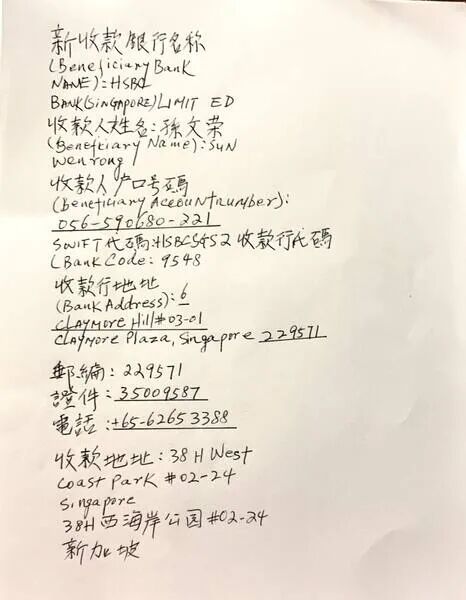 新收款銀行名称
(Beneficiary Bank
NAME):HSBC
BANK(SINGAPORE)LIMIT ED
收款人姓名:孫文荣
(Benefikiary Name):SUN
Wenrong
收款人户口号碼
(Beneficiary Account number):
056-590680-221
SWIFT代碼:HSBCSGS2 收款行代碼
(Bank Code: 9548
收款行地址
(Bank Address): 6
CLAYMORE Hill#03-01
CLAYMORE Plaza, Singapore 229571
郵編: 229571
證件: 35009587
電話:+65-6265 3388
收款地址:38 H West
Coast Park #02-24
Singapore
38H西海岸公园#02-24
新加坡